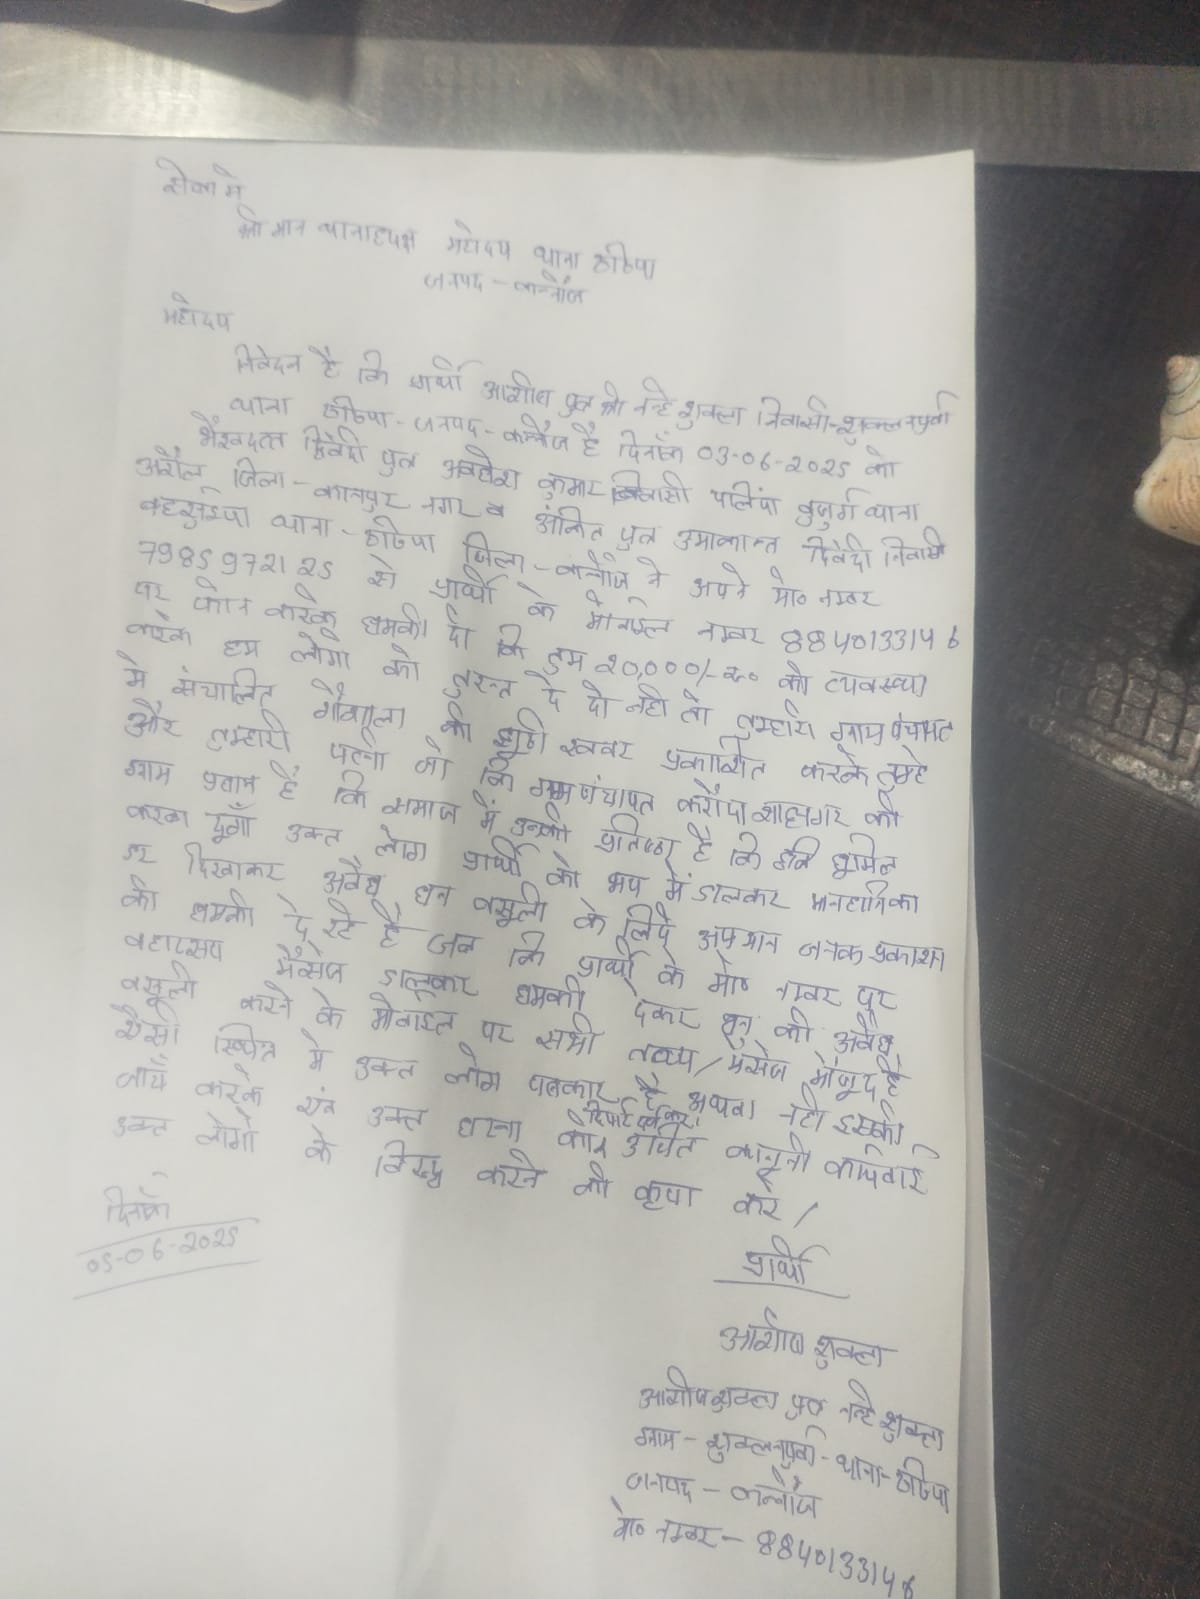 सेवा में
श्री मान थानाध्यक्ष महोदय थाना ठठिया
जनपद - कन्नौज
महोदय
निवेदन है कि प्रार्थी आशीष पुत्र श्री नन्हे शुक्ला निवासी-शुक्लनपुर्वा
थाना ठठिया-जनपद-कन्नौज है दिनाँक 03-06-2025 को
भैरवदत्त द्विवेदी पुत्र अवधेश कुमार निवासी पलिया बुजुर्ग थाना
अरौल जिला-कानपुर नगर व अंकित पुत्र उमाकान्त द्विवेदी निवासी
थाना-ठठिया जिला-कन्नौज ने अपने मो० नम्बर
7985972125 से प्रार्थी के मोबाइल नम्बर 8840133146
पर फोन करके धमकी दी कि तुम 20,000/-रू० की व्यवस्था
करके हम लोगो को तुरन्त दे दो नही तो तुम्हारी ग्राम पंचायत
मे संचालित गौशाला की झूठी खबर प्रकाशित करके तुम्हे
और तुम्हारी पत्नी जो कि ग्राम पंचायत करौंदा शाहनगर की
ग्राम प्रधान है कि समाज में उनकी प्रतिष्ठा है कि छवि धूमिल
करवा दूगाँ उक्त लोग प्रार्थी को भय में डालकर मानहानि का
डर दिखाकर अवैध धन वसूली के लिये अपमान जनक प्रकाशन
की धमकी दे रहे है जब कि प्रार्थी के मो० नम्बर पर
वहाटसप मैसेज डालकर धमकी देकर धन की अवैध
वसूली करने के मोबाइल पर सभी तथ्य/मैसेज मौजूद है
ऐसी स्थिति मे उक्त लोग पत्रकार है अथवा नही इसकी
जाँच करके एवं उक्त घटना की रिपोर्ट दर्ज कर उचित कानूनी कार्यवाई
उक्त लोगो के विरुद्ध करने की कृपा करे।
दिनाँक
05-06-2025
प्रार्थी
आशीष शुक्ला
आशीष शुक्ला पुत्र नन्हे शुक्ला
ग्राम-शुक्लनपुर्वा-थाना-ठठिया
जनपद-कन्नौज
मो० नम्बर-8840133146